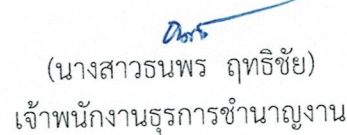 (นางสาวธนพร ฤทธิชัย)
เจ้าพนักงานธุรการชำนาญงาน